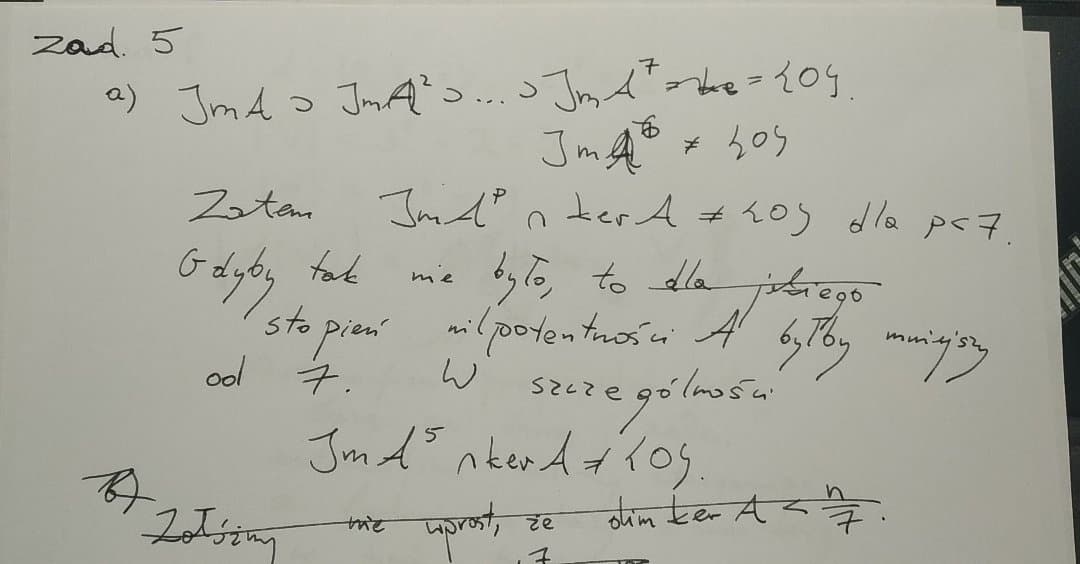 zad. 5
a) Im A ⊃ Im A² ⊃ ... ⊃ Im A⁷ = {0}.
Im A⁶ ≠ {0}
Zatem Im Aᵖ ∩ ker A ≠ {0} dla p<7.
Gdyby tak nie było, to dla jakiego
stopień nilpotentności A byłby mniejszy
od 7. W szczególności
Im A⁵ ∩ ker A ≠ {0}.
b)
Załóżmy nie wprost, że dim ker A < n/7.
7